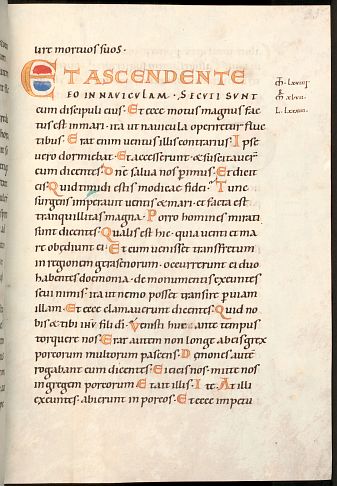 urt mortuos suos·
ET ASCENDENTE
EO IN NAVICULAM· SECUTI SUNT
eum discipuli eius· Et ecce motus magnus fac
tus est in mari· ita ut navicula operiretur fluc
tibus· Erat enim ventus illis contrarius· Ipse
vero dormiebat· Et accesserunt & suscitaver̄
eum dicentes· Dn̄e salva nos perimus· Et dicit
eis· Quid timidi estis modicae fidei· Tunc
surgens imperavit ventis & mari· et facta est
tranquillitas magna· Porro homines mirati
sunt dicentes· Qualis est hic· quia venti et ma
re obediunt ei· Et cum venisset transfretum
in regionem gerasenorum· occurrerunt ei duo
habentes daemonia· de monumentis exeuntes
sevi nimis· ita ut nemo posset transire p viam
illam· Et ecce clamaverunt dicentes· Quid no
bis & tibi ihū fili dī· Venisti huc ante tempus
torquere nos· Erat autem non longe ab eis grex
porcorum multorum pascens· Demones aut̄
rogabant eum dicentes· Si eicis nos· mitte nos
in gregem porcorum· Et ait illis· Ite· At illi
exeuntes· abierunt in porcos· Et ecce impetu